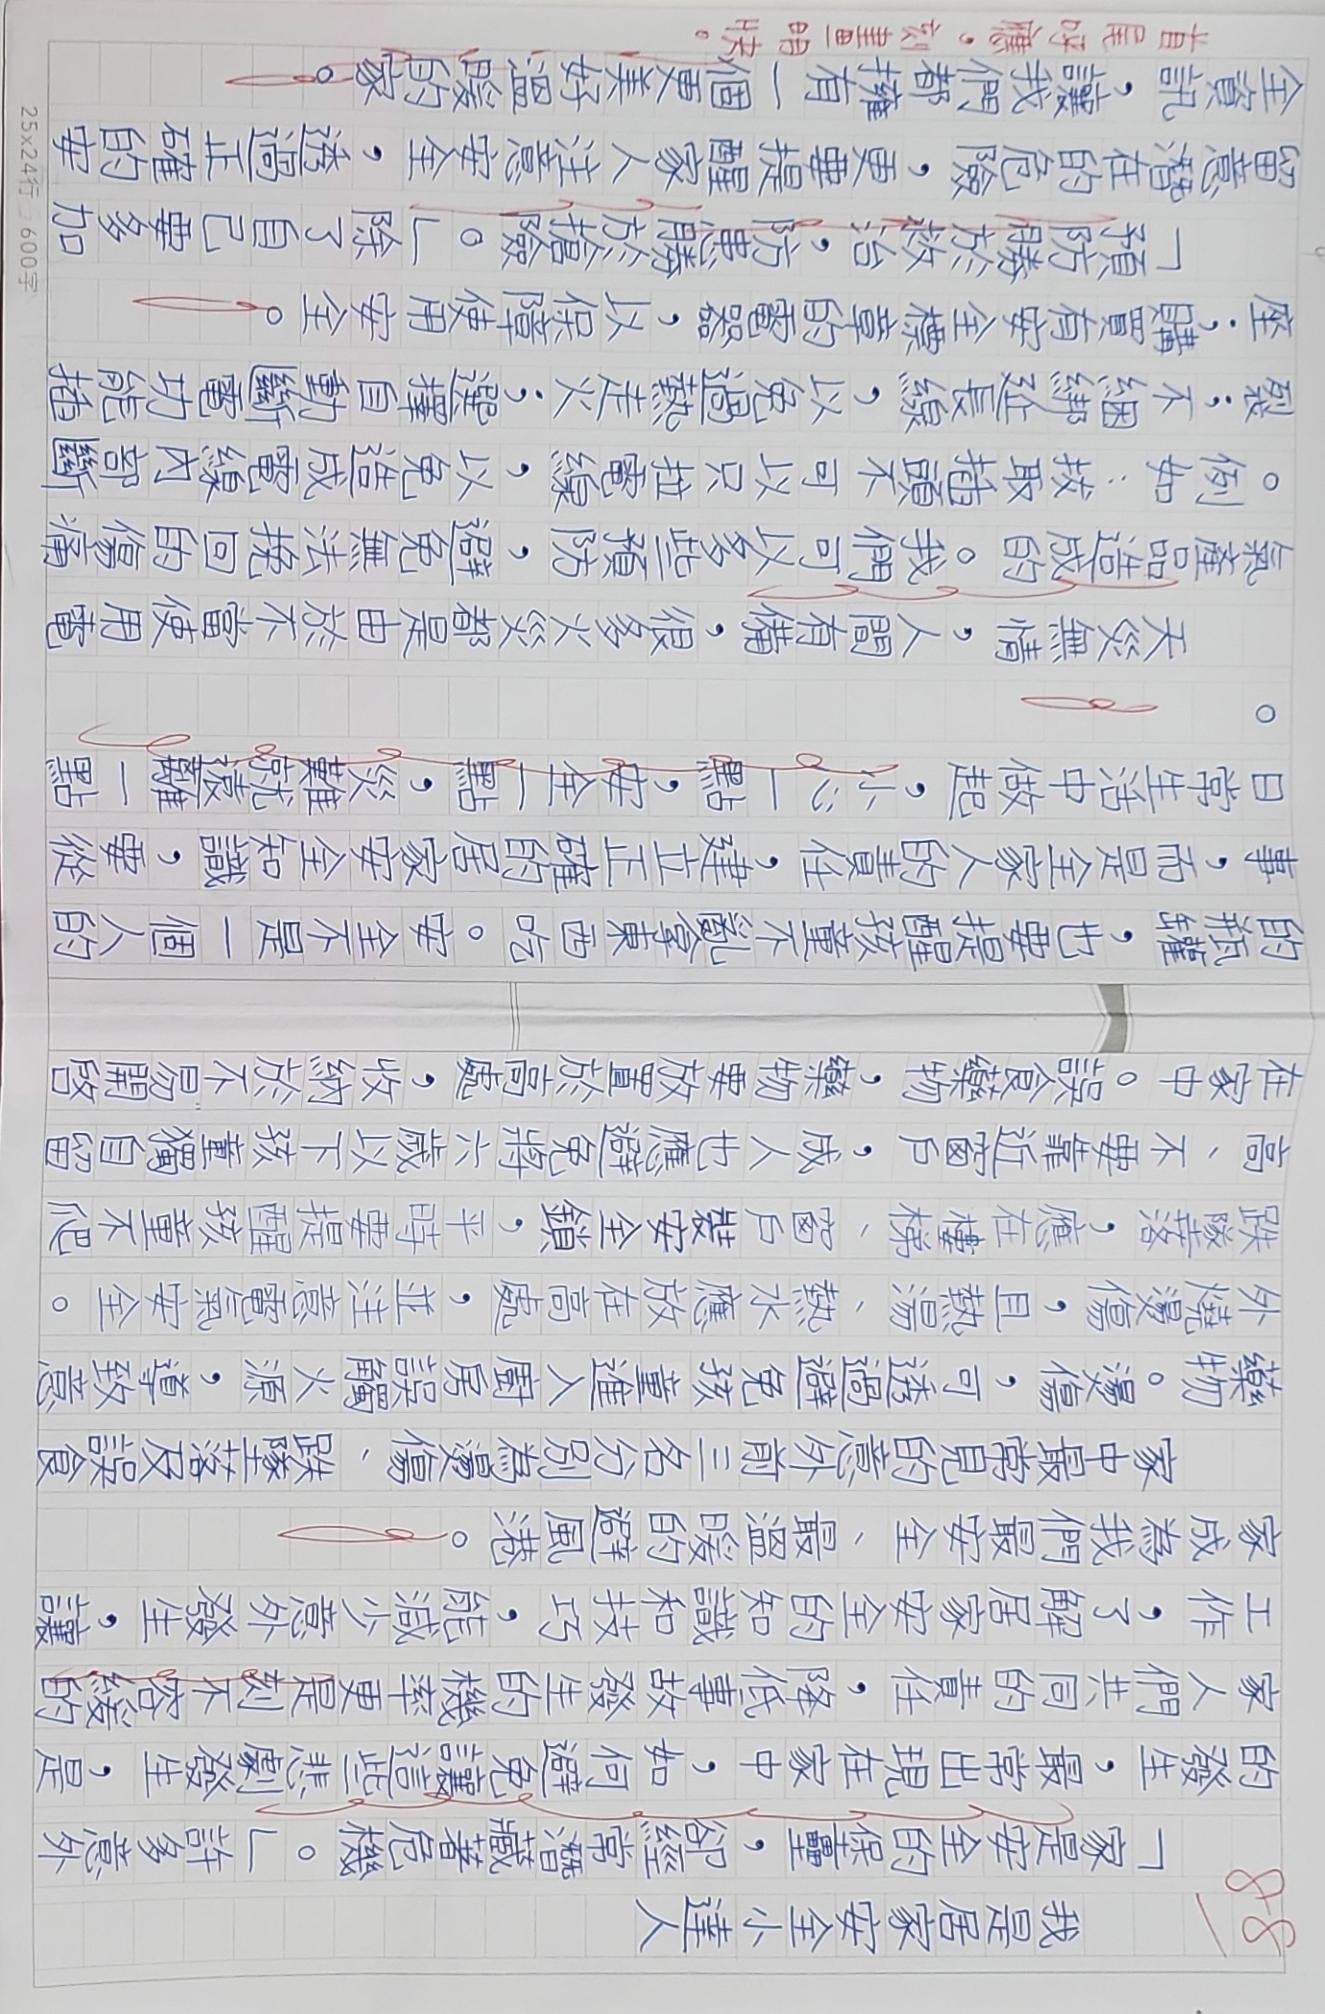 88
我是居家安全小達人
「家是安全的保壘，卻經常潛藏著危機。」許多意外
的發生，最常出現在家中，如何避免讓這些悲劇發生，是
家人們共同的責任，降低事故發生的機率更是刻不容緩的
工作，了解居家安全的知識和技巧，能減少意外發生，讓
家成為我們最安全、最溫暖的避風港。
家中最常見的意外前三名分別為燙傷、跌墜落及誤食
藥物。燙傷，可透過避免孩童進入廚房誤觸火源，導致意
外燒燙傷，且熱湯、熱水應放在高處，並注意電氣安全。
跌墜落，應在樓梯、窗戶裝安全鎖，平時要提醒孩童不爬
高、不要靠近窗戶，成人也應避免將六歲以下孩童獨自留
在家中。誤食藥物，藥物要放置於高處，收納於不易開啟
的瓶罐，也要提醒孩童不亂拿東西吃。安全不是一個人的
事，而是全家人的責任，建立正確的居家安全知識，要從
日常生活中做起，小心一點，安全一點，災難就遠離一點
。
天災無情，人間有備，很多火災都是由於不當使用電
氣產品造成的。我們可以多些預防，避免無法挽回的傷痛
。例如：拔取插頭不可以只扭電線，以免造成電線內部斷
裂；不綑綁延長線，以免過熱走火；選擇自動斷電功能插
座；購買有安全標章的電器，以保障使用安全。
「預防勝於救治，防患勝於搶險。」除了自己要多加
留意潛在的危險，更要提醒家人注意安全，透過正確的安
全資訊，讓我們都擁有一個更美好溫暖的家。
首尾呼應，刻畫明快。
25×24行=600字